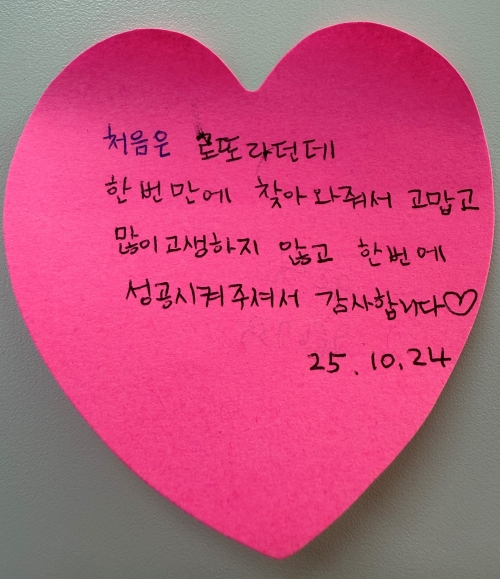 처음은 로또라던데
한번만에 찾아와줘서 고맙고
많이고생하지 않고 한번에
성공시켜주셔서 감사합니다♡
25.10.24